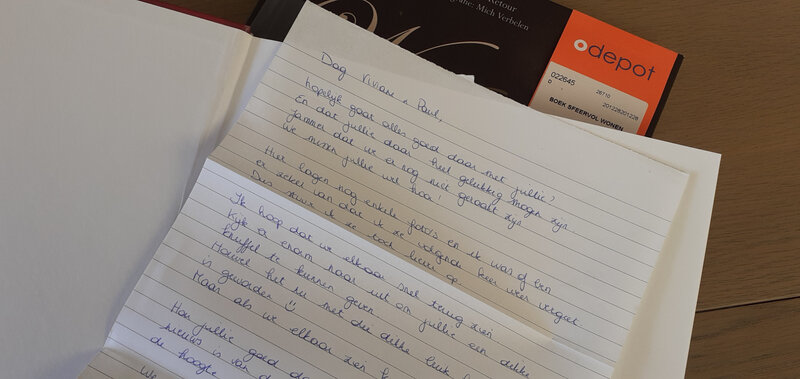 Retour
Mich Verbelen
depot
022645
26710
0
201228201228
BOEK SFEERVOL WONEN
Dag Viviane n Paul,
hopelijk gaat alles goed daar met jullie?
En dat jullie daar heel gelukkig mogen zijn
jammer dat we er nog niet geraakt zijn
we missen jullie wel hoor!
Hier lagen nog enkele foto's en ik was of ben
er zeker van dat ik ze volgende keer weer vergeet
Dus stuur ik ze toch liever op
Ik hoop dat we elkaar snel terug zien
Kijk er enorm naar uit om jullie een dikke
knuffel te kunnen geven
Hoewel het nu met die dikke buik
is geworden
Maar als we elkaar zien
Hou jullie goed
nieuws is van
de hoogte
We